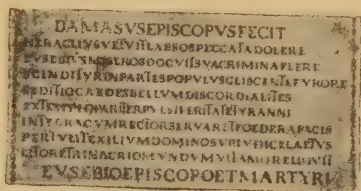 DAMASVSEPISCOPVSFECIT
HERACLIVSVETVITLABSOSPECCATADOLERE
EVSEBIVSMISEROSDOCVITSVACRIMINAFLERE
SCINDITVRINPARTESPOPVLVSGLISCENTEFVRORE
SEDITIOCAEDESBELLVMDISCORDIALITES
EXTEMPLOPARITERPVLSIFERITATETYRANNI
INTEGRACVMRECTORSERVARETFOEDERAPACIS
PERTVLITEXILIVMDOMINOSVBIVDICELAETVS
LITORETRINACRIOMVNDVMVITAMQRELIQVIT
EVSEBIOEPISCOPOETMARTYRI